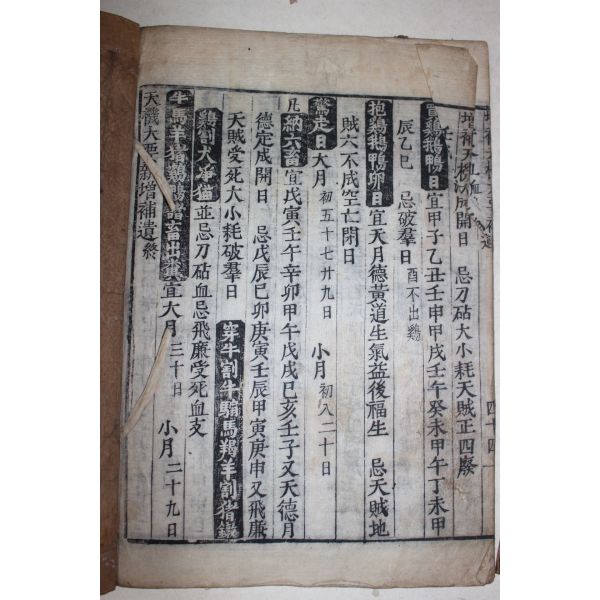 成開日 忌刀砧大小耗天賊正四廢
買鷄鵝鴨日宜甲子乙丑壬申甲戌壬午癸未甲午丁未甲
辰乙巳 忌破羣日 酉不出鷄
抱鷄鵝鴨卵日宜天月德黃道生氣益後福生 忌天賊地
賊六不成空亡閉日
驚走日大月初五十七廿九日 小月初八二十日
凡納六畜宜戊寅壬午辛卯甲午戊戌巳亥壬子又天德月
德定成開日 忌戊辰巳卯庚寅壬辰甲寅庚申又飛廉
天賊受死大小耗破羣日 穿牛割牛騸馬羯羊割猪鐵
鷄割犬 猫並忌刀砧血忌飛廉受死血支
牛馬羊猪鷄鵝 畜出 宜大月三十日 小月二十九日
天機大要新增補遺終